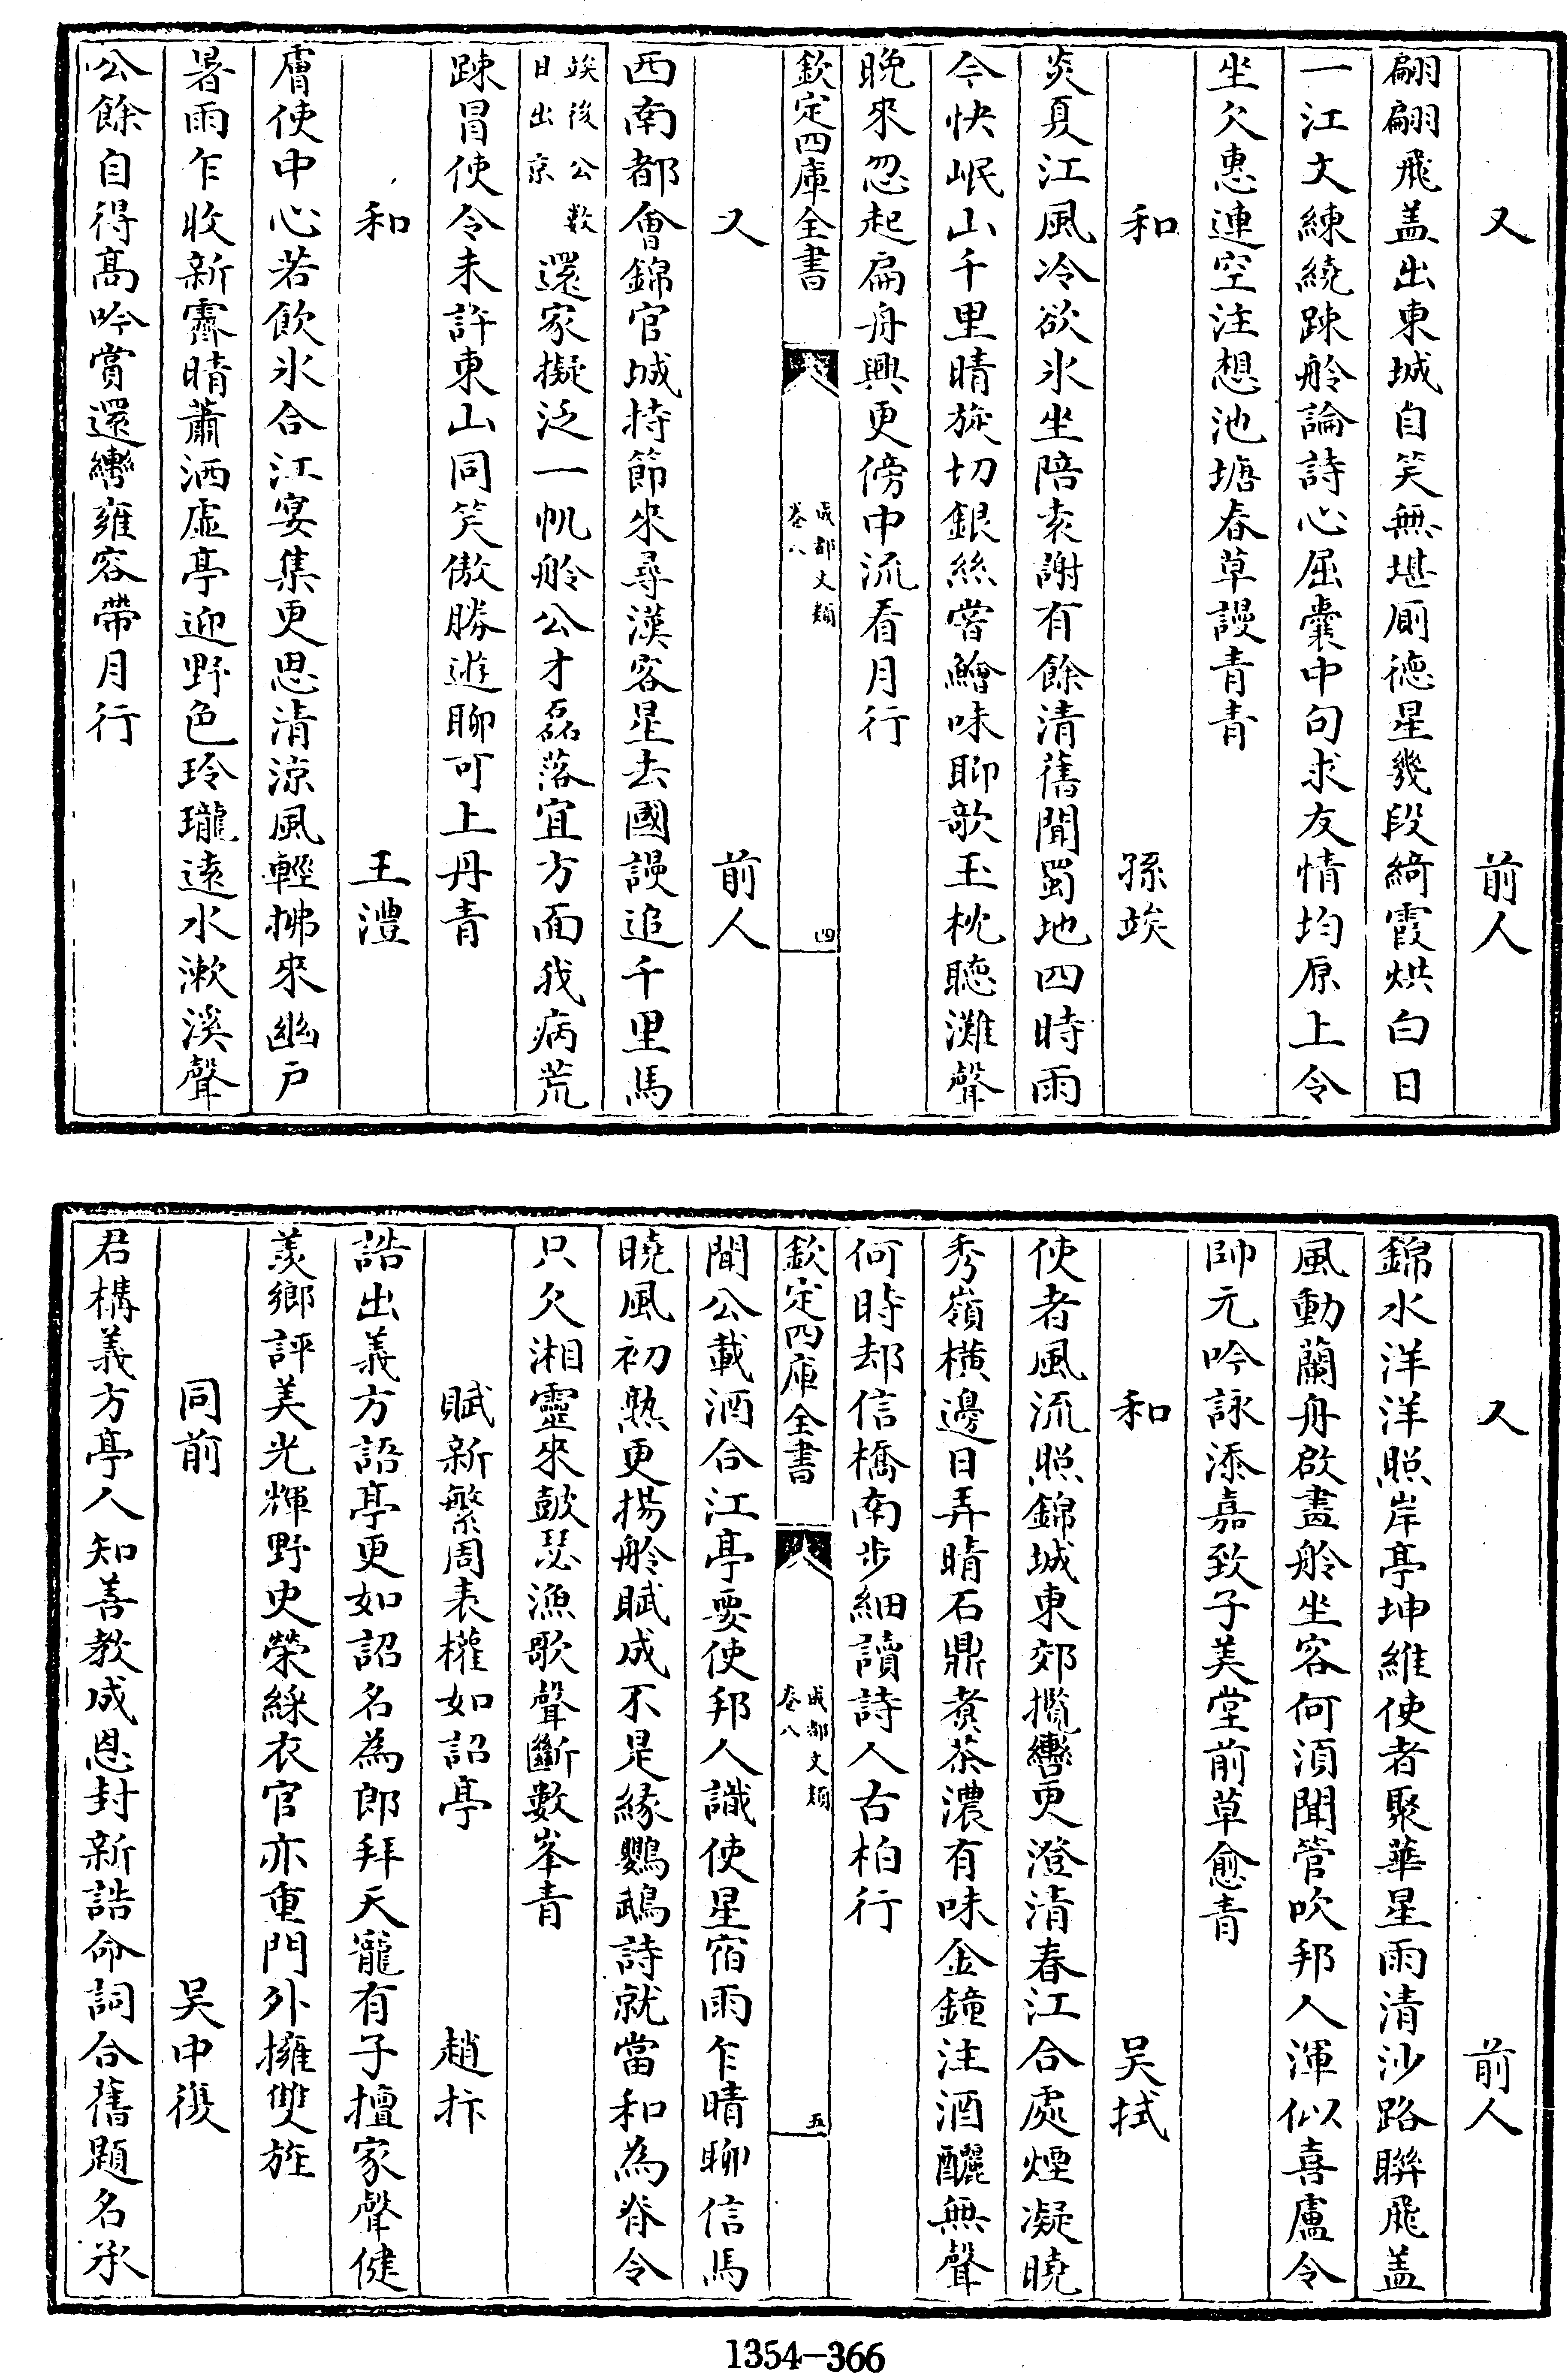 又　前人
翩翩飛盖出東城自笑無堪厠徳星幾段綺霞烘白日
一江文練繞踈舲論詩心屈囊中句求友情均原上令
坐欠恵連空注想池塘春草謾青青
和　孫竢
炎夏江風冷欲氷坐陪索謝有餘清舊聞蜀地四時雨
今快岷山千里晴旋切銀絲嘗鱠味聊欹玉枕聴灘聲
晩來忽起扁舟興更傍中流看月行
欽定四庫全書　成都文類卷八　四
又　前人
西南都會錦官城持節來尋漢客星去國謾追千里馬
竢後公數日出京還家擬泛一帆舲公才磊落宜方面我病荒
踈冒使令未許東山同笑傲勝遊聊可上丹青
和　王澧
膚使中心若飲氷合江宴集更思清凉風輕拂來幽戸
暑雨乍收新霽晴蕭洒虚亭迎野色玲瓏遠水漱溪聲
公餘自得髙吟賞還轡雍容帶月行
又　前人
錦水洋洋照岸亭坤維使者聚華星雨清沙路聨飛盖
風動蘭舟啟畫舲坐客何湏聞管吹邦人渾似喜盧令
帥元吟詠添嘉致子美堂前草愈青
和　吴拭
使者風流照錦城東郊攬轡更澄清春江合處煙凝曉
秀嶺横邊日弄晴石鼎煮茶濃有味金鐘注酒釃無聲
何時却信橋南步細讀詩人古柏行
欽定四庫全書　成都文類卷八　五
聞公載酒合江亭要使邦人識使星宿雨乍晴聊信馬
曉風初熟更揚舲賦成不是縁鸚鵡詩就當和為脊令
只欠湘靈來鼓瑟漁歌聲斷數峯青
賦新繁周表權如詔亭　趙抃
誥出義方語亭更如詔名為郎拜天寵有子擅家聲健
羡鄉評美光輝野史榮綵衣官亦重門外擁雙旌
同前　吴中復
君構義方亭人知善教成恩封新誥命詞合舊題名承
1354-366